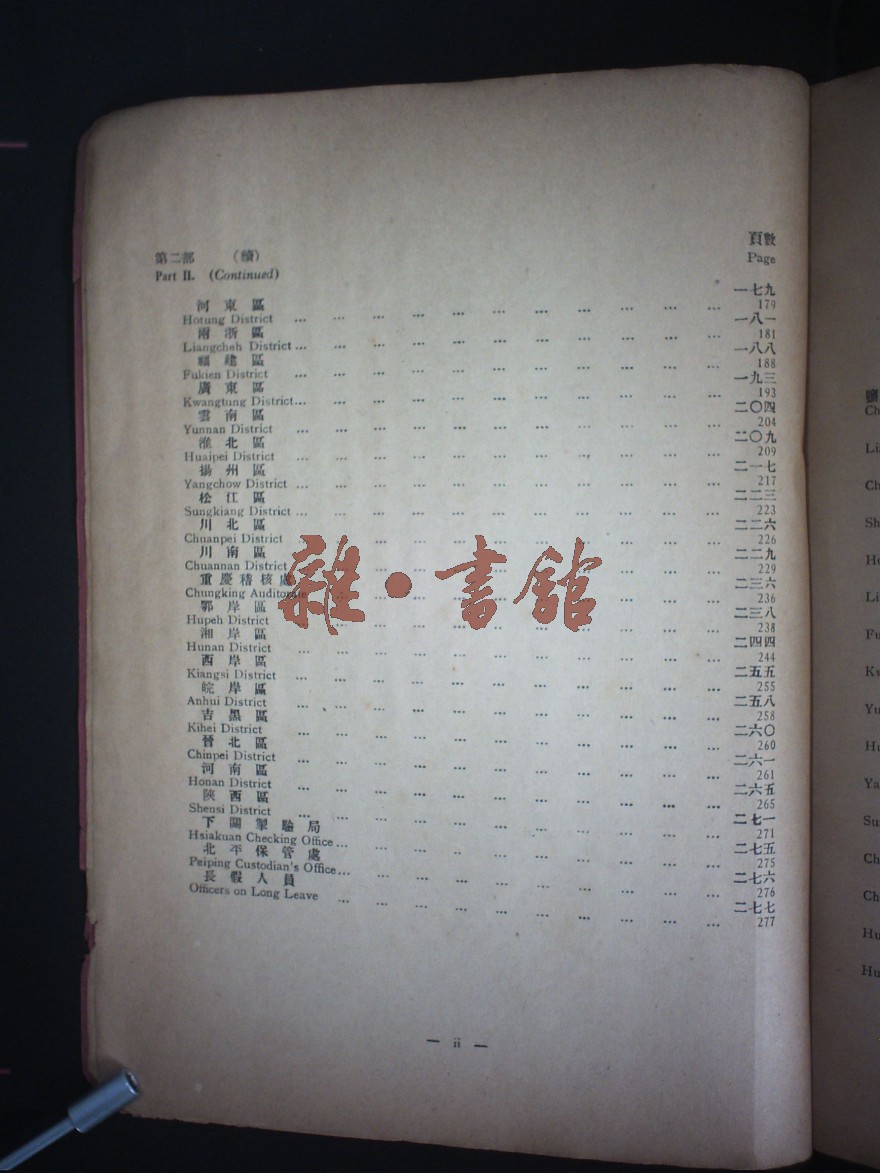 第二部 （續） 頁數
Part II. (Continued) Page
河東區 一七九
Hotung District ... ... ... ... ... ... ... ... ... ... ... 179
兩浙區 一八一
Liangcheh District ... ... ... ... ... ... ... ... ... ... ... 181
福建區 一八八
Fukien District ... ... ... ... ... ... ... ... ... ... ... 188
廣東區 一九三
Kwangtung District ... ... ... ... ... ... ... ... ... ... ... 193
雲南區 二〇四
Yunnan District ... ... ... ... ... ... ... ... ... ... ... 204
淮北區 二〇九
Huaipei District ... ... ... ... ... ... ... ... ... ... ... 209
揚州區 二一七
Yangchow District ... ... ... ... ... ... ... ... ... ... ... 217
松江區 二二三
Sungkiang District ... ... ... ... ... ... ... ... ... ... ... 223
川北區 二二六
Chuanpei District ... ... ... ... ... ... ... ... ... ... ... 226
川南區 二二九
Chuannan District ... ... ... ... ... ... ... ... ... ... ... 229
重慶稽核處 二三六
Chungking Auditorate ... ... ... ... ... ... ... ... ... ... 236
鄂岸區 二三八
Hupeh District ... ... ... ... ... ... ... ... ... ... ... 238
湘岸區 二四四
Hunan District ... ... ... ... ... ... ... ... ... ... ... 244
西岸區 二五五
Kiangsi District ... ... ... ... ... ... ... ... ... ... ... 255
皖岸區 二五八
Anhui District ... ... ... ... ... ... ... ... ... ... ... 258
吉黑區 二六〇
Kihei District ... ... ... ... ... ... ... ... ... ... ... 260
晉北區 二六一
Chinpei District ... ... ... ... ... ... ... ... ... ... ... 261
河南區 二六五
Honan District ... ... ... ... ... ... ... ... ... ... ... 265
陝西區 二七一
Shensi District ... ... ... ... ... ... ... ... ... ... ... 271
下關掣驗局 二七五
Hsiakuan Checking Office ... ... ... ... ... ... ... ... ... ... 275
北平保管處 二七六
Peiping Custodian's Office ... ... ... ... ... ... ... ... ... ... 276
長假人員 二七七
Officers on Long Leave ... ... ... ... ... ... ... ... ... ... 277
雜·書館
— ii —